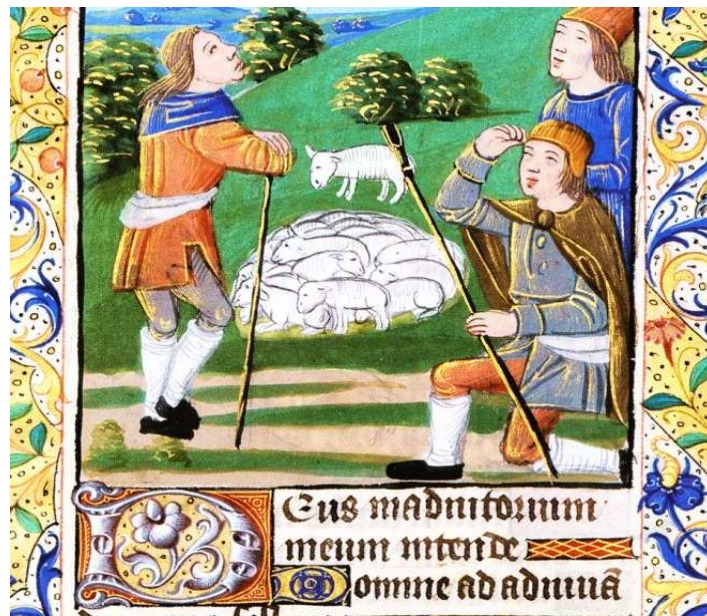 Deus in adiutorium
meum intende
Domine ad adiuuā